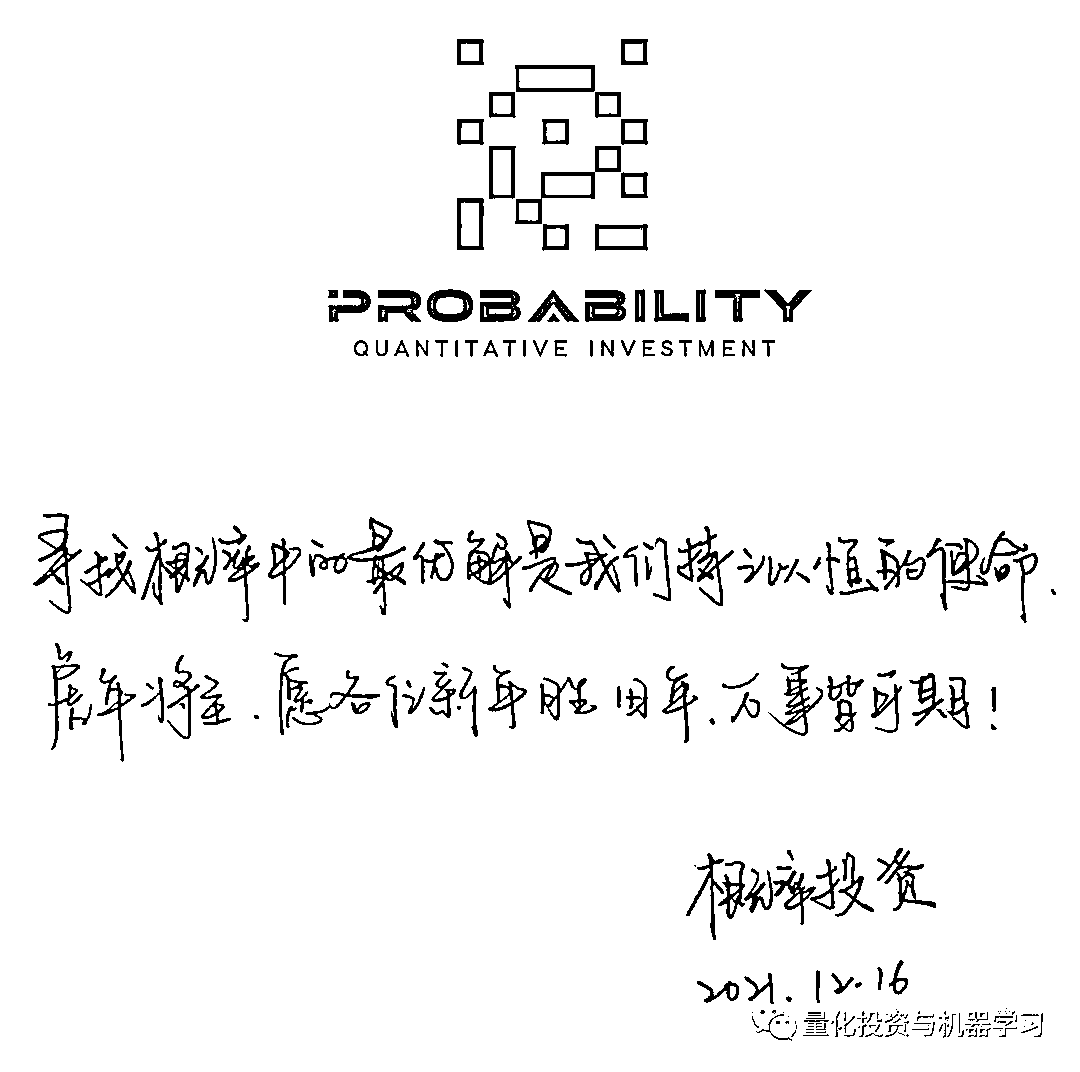 PROBABILITY
QUANTITATIVE INVESTMENT
寻找概率中的最优解是我们持之以恒的使命.
虎年将至.愿各位新年胜旧年.万事皆可期!
概率投资
2021.12.16
量化投资与机器学习